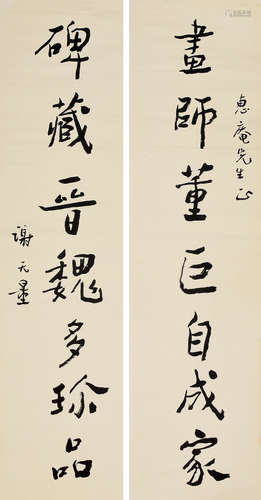 畫師董巨自成家
惠庵先生正
碑藏晉魏多珍品
謝无量